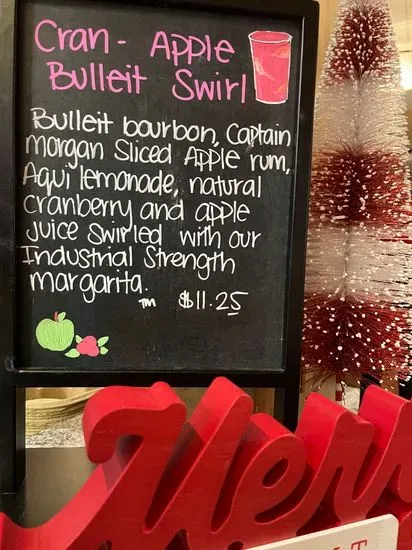 Cran - Apple
Bulleit Swirl
Bulleit bourbon, Captain
morgan Sliced Apple rum,
Aqui lemonade, natural
cranberry and apple
juice swirled with our
Industrial Strength
margarita.
™ $11.25
Merr